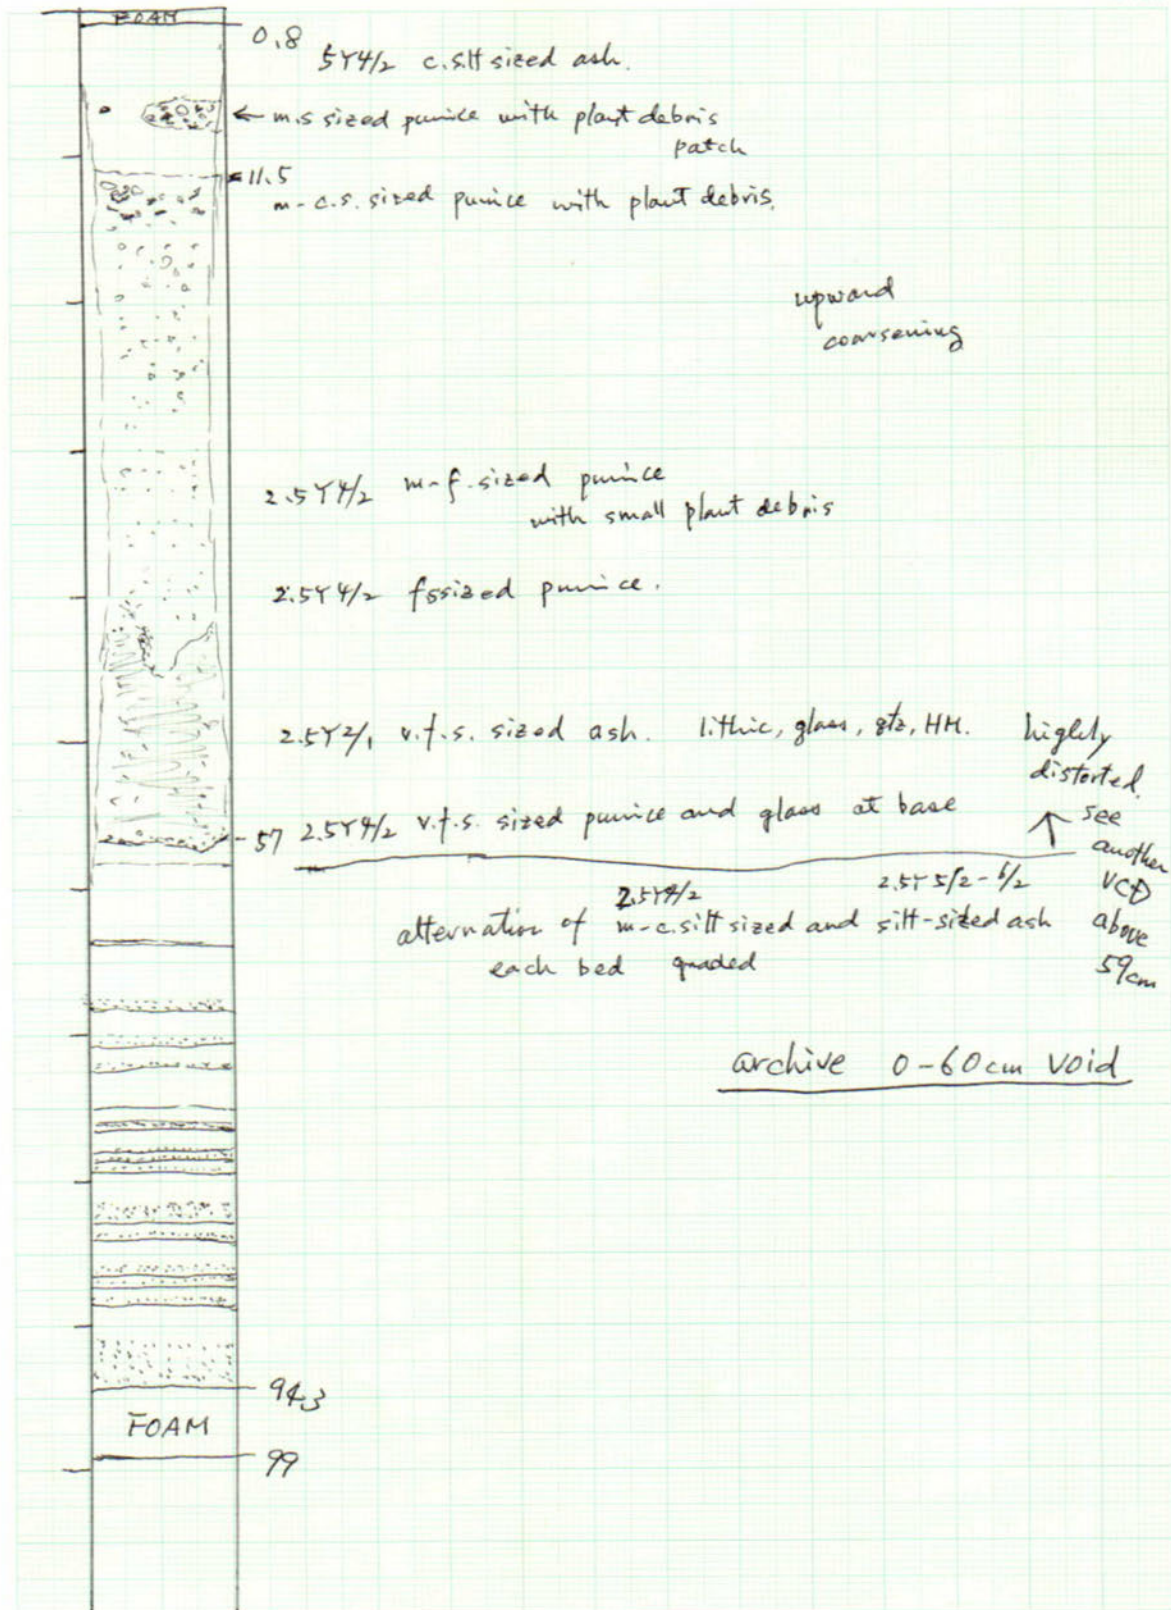 FOAM
0.8
5Y4/2 c.silt sized ash.
← m.s sized pumice with plant debris
patch
11.5
m-c.s. sized pumice with plant debris.
upward
coarsening
2.5Y4/2 m-f. sized pumice
with small plant debris
2.5Y4/2 fs sized pumice.
2.5Y2/1 v.f.s. sized ash. lithic, glass, qtz, HM.
highly
distorted.
57 2.5Y4/2 v.f.s. sized pumice and glass at base
↑ see
another
VCD
above
59cm
2.5Y4/2 2.5Y5/2-6/2
alternation of m-c.silt sized and silt-sized ash
each bed graded
archive 0-60cm void
94.3
FOAM
99